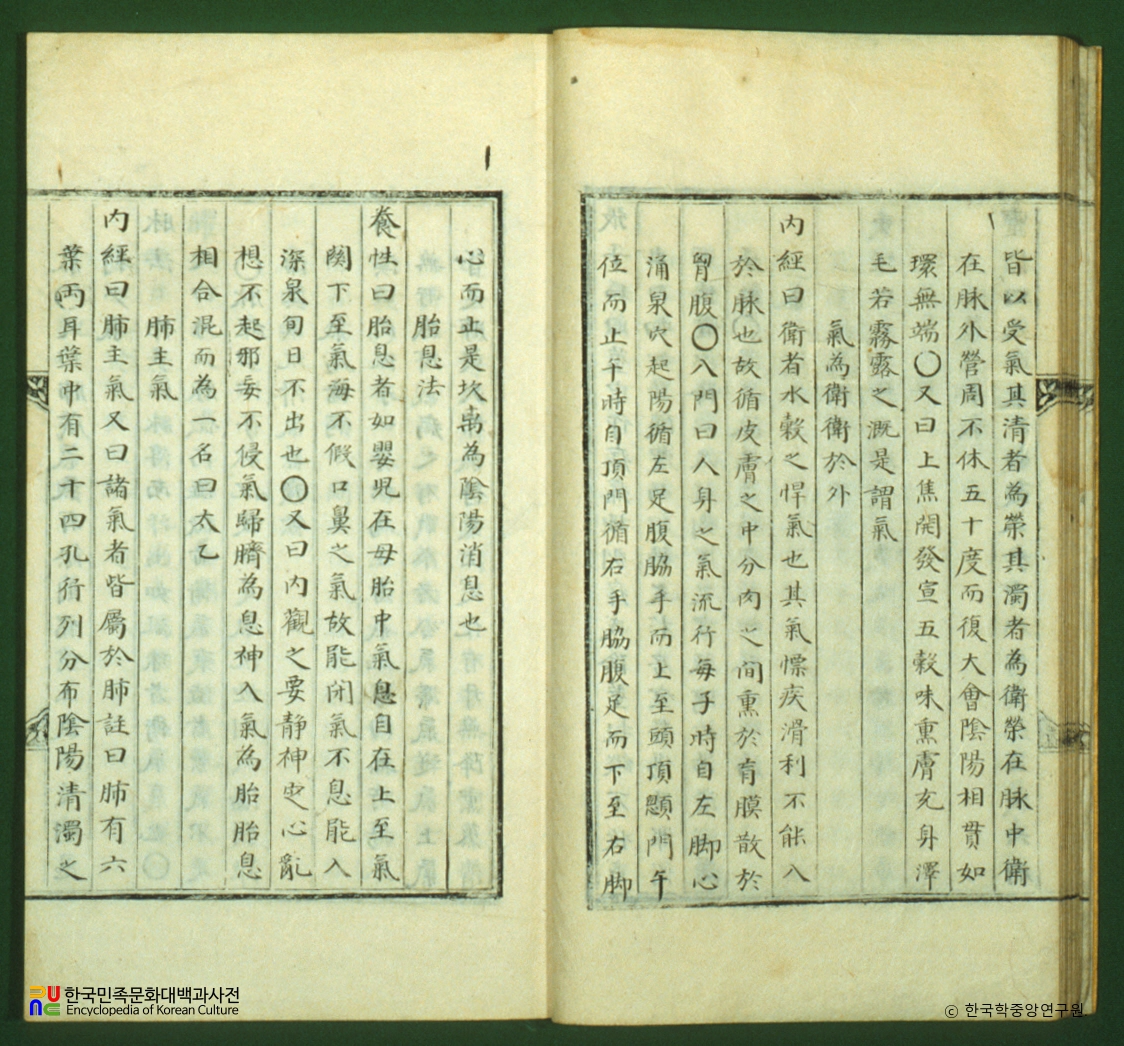 皆以受氣其清者為榮其濁者為衛榮在脉中衛
在脉外營周不休五十度而復大會陰陽相貫如
環無端〇又曰上焦開發宣五穀味熏膚充身澤
毛若霧露之溉是謂氣
氣為衛衛於外
內經曰衛者水穀之悍氣也其氣慓疾滑利不能入
於脉也故循皮膚之中分肉之間熏於肓膜散於
胷腹〇入門曰人身之氣流行每子時自左脚心
涌泉穴起陽循左足腹脇手而上至頭頂顖門午
位而止午時自頂門循右手脇腹足而下至右脚
心而止是坎离為陰陽消息也
胎息法
養性曰胎息者如嬰兒在母胎中氣息自在上至氣
関下至氣海不假口鼻之氣故能閉氣不息能入
深泉旬日不出也〇又曰內觀之要静神㝎心亂
想不起邪妄不侵氣歸臍為息神入氣為胎胎息
相合混而為一名曰太乙
肺主氣
內經曰肺主氣又曰諸氣者皆屬於肺註曰肺有六
葉兩耳葉中有二十四孔行列分布陰陽清濁之
한국민족문화대백과사전
Encyclopedia of Korean Culture
© 한국학중앙연구원